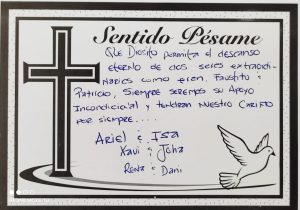 Sentido Pésame
Que Diosito permita el descanso
eterno de dos seres extraordi-
narios como eran. Faustito &
Patricio, siempre seremos su Apoyo
Incondicial y tendran nuestro Cariño
por siempre....
Ariel & Isa
Xavi & Joha
Rena & Dani